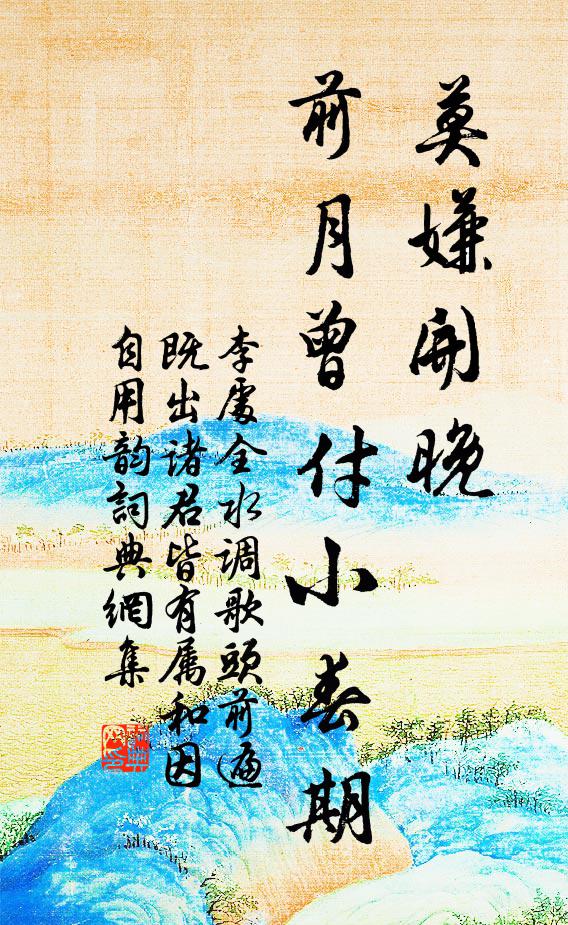 莫嫌開晚
前月曾付小春期
李處全水调歌頭前遍
既出诸君皆有属和因
自用韵詞典網集